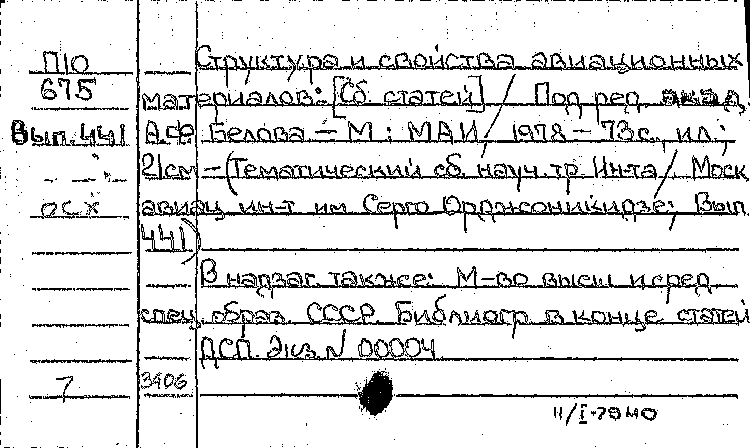 П10 Структура и свойства авиационных
675 материалов: [Сб. статей] / Под ред. акад.
Вып. 441 А.Ф. Белова. – М.: МАИ, 1978 – 73 с., ил.;
21 см – (Тематический сб. науч. тр. Ин-та / Моск
осх авиац ин-т им Серго Орджоникидзе; Вып
441)
В надзаг. также: М-во высш и сред
спец. образ. СССР. Библиогр в конце статей
ДСП. Экз. N 00004
7 3406
11/I-79 МО